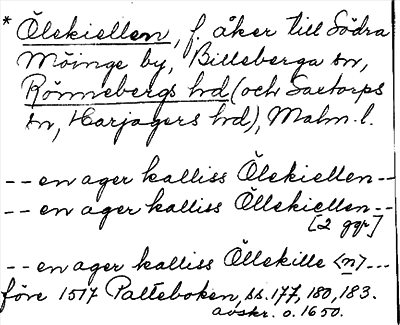 * Ölekiellen, f. åker till Södra
Möinge by, Billeberga sn,
Rönnebergs hd (och Saxtorps
sn, Harjagers hd), Malm. l.
-- en ager kalliss Ölekiellen --
-- en ager kalliss Öllekiellen --
[2 ggr]
-- en ager kalliss Öllekille <n> ---
före 1517 Palteboken, ss. 177, 180, 183.
avskr. o. 1650.